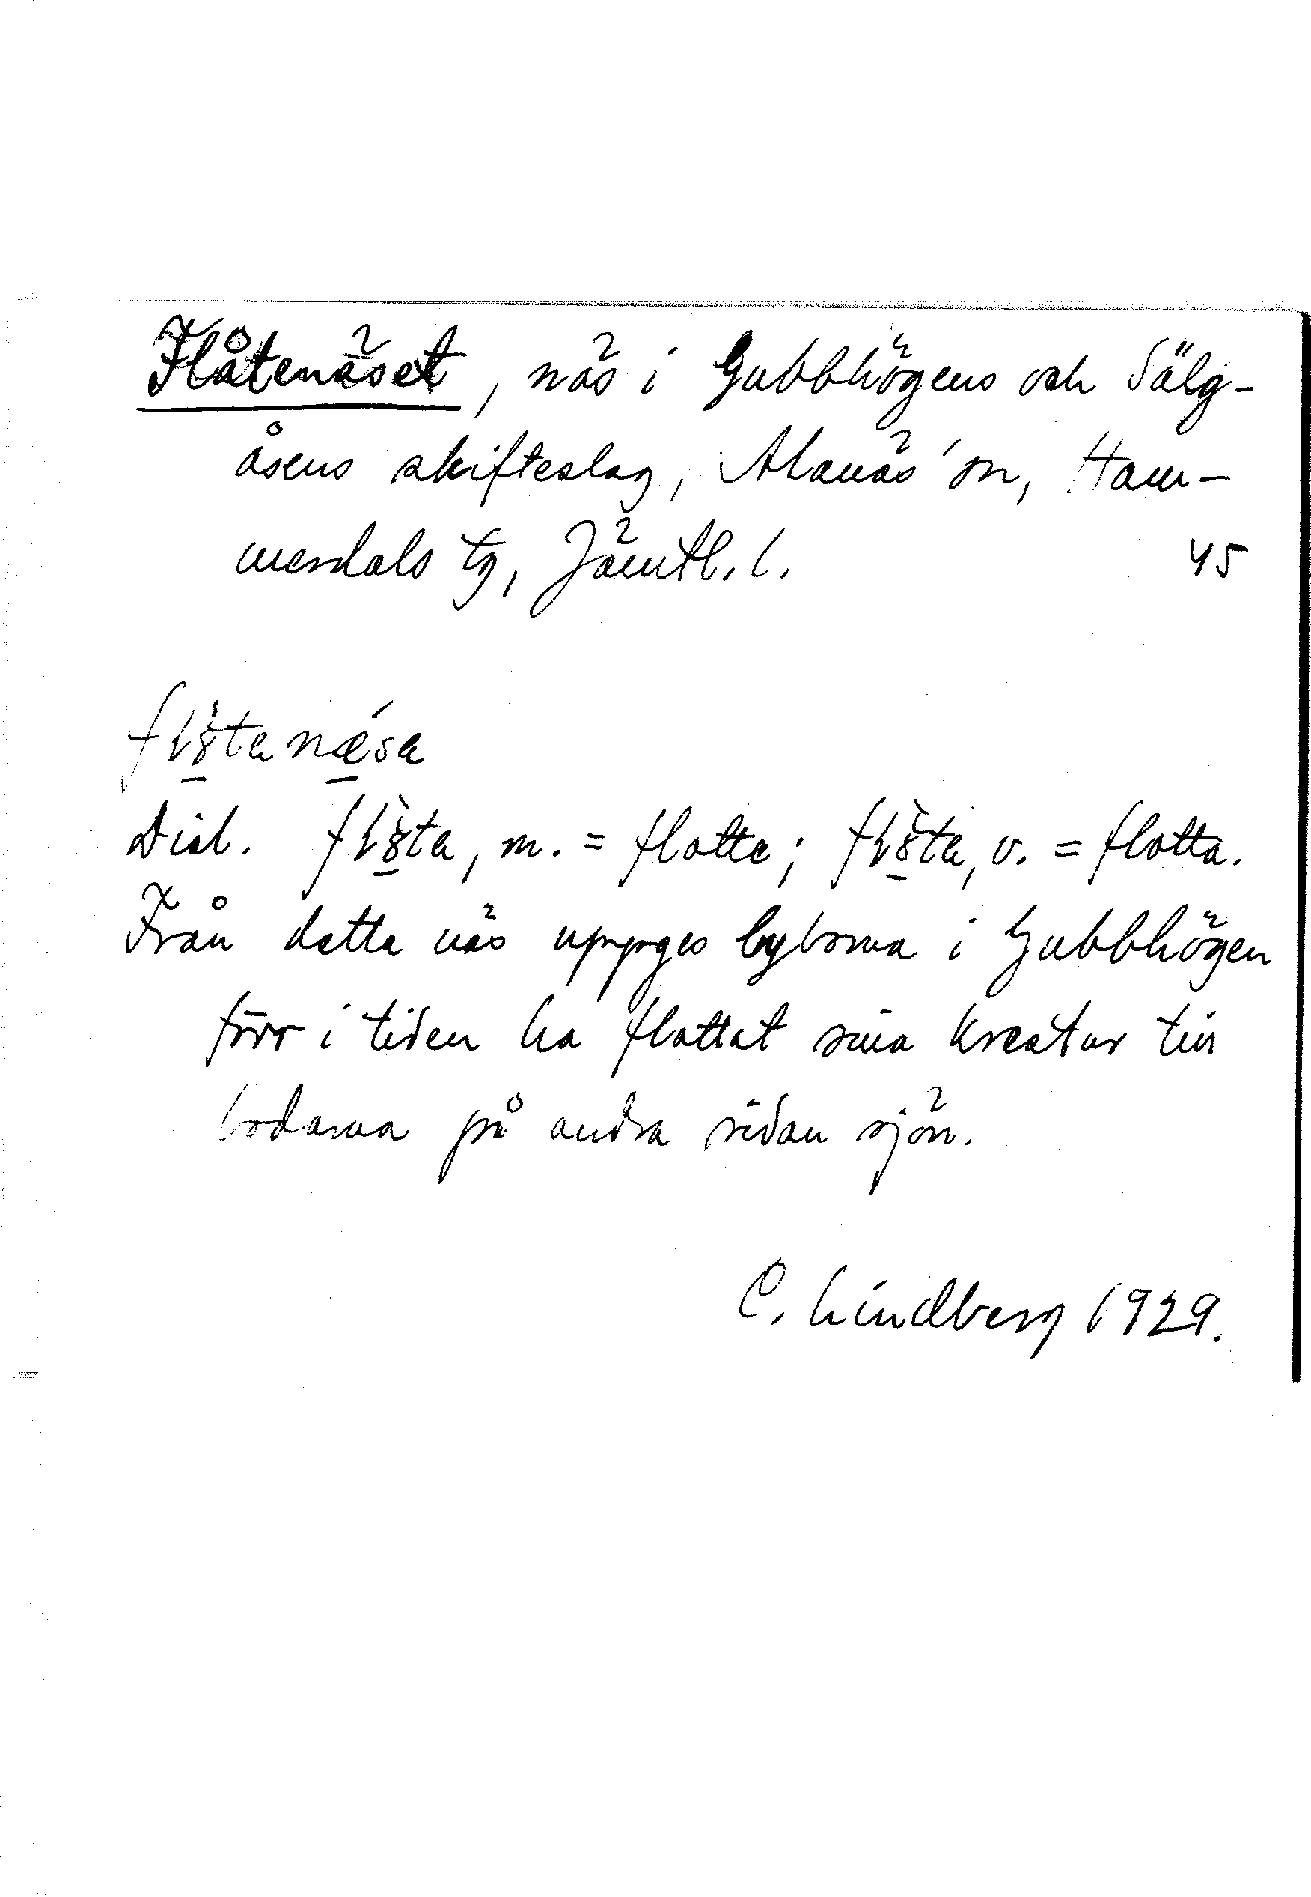 Flåtenäset, näs i Gubbhögens och Sälg-
åsens skifteslag, Alanäs sn, Ham-
merdals tg, Jämtl. l. 45
fłȣ̀tanǽsa
Dial. fłȣ̀ta, m. = flotte; fłȣ̀ta, v. = flotta.
Från detta näs uppges byborna i Gubbhögen
förr i tiden ha flottat sina kreatur till
bodarna på andra sidan sjön.
C. Lindberg 1929.